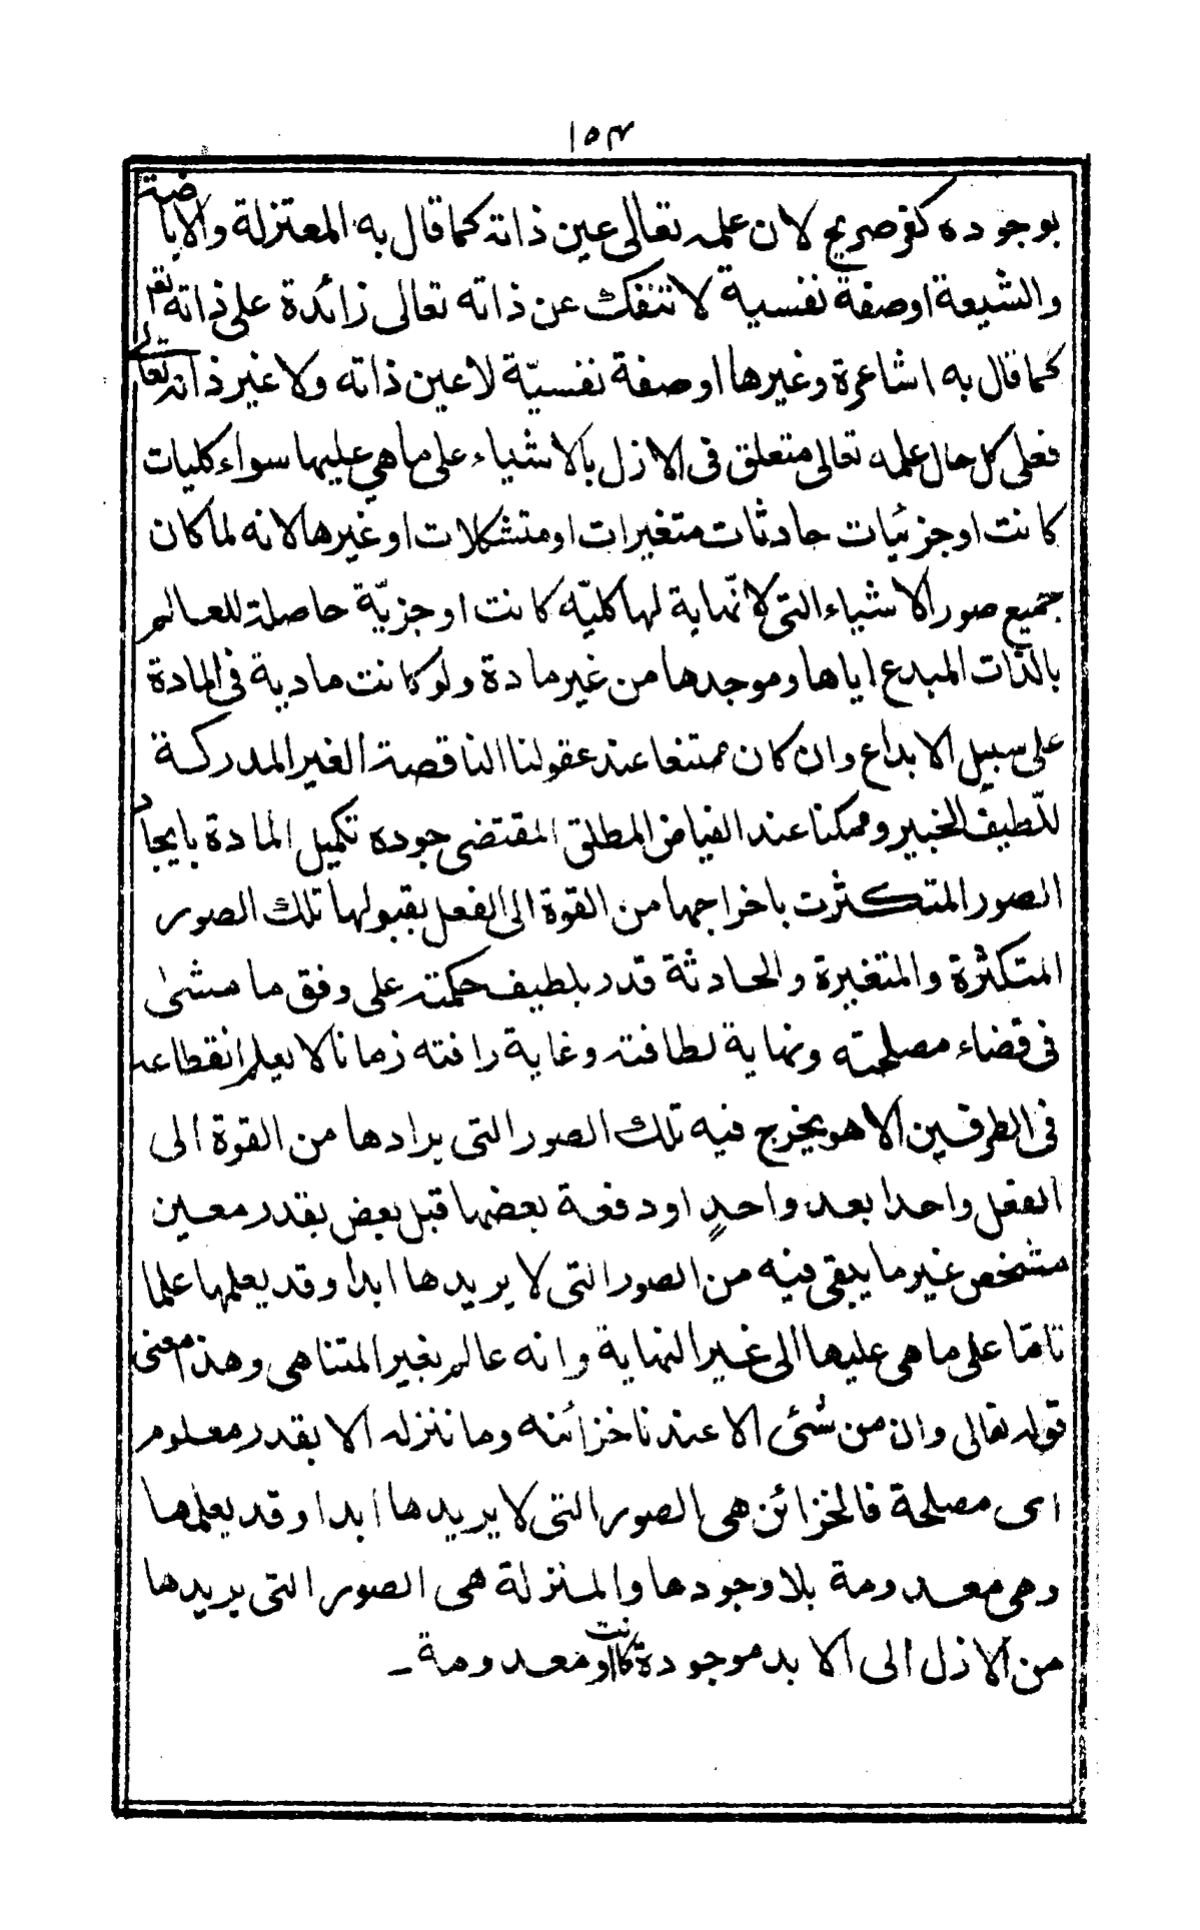 ١٥٣
بوجوده كفر صريح لان علمه تعالى عين ذاته كما قال به المعتزلة والاباضية
والشيعة اوصفة نفسية لا تنفك عن ذاته تعالى زائدة على ذاته تعالى
كما قال به اشاعرة وغيرها اوصفة نفسيّة لا عين ذاته ولا غير ذاته تعالى
فعلى كل حال علمه تعالى متعلق فى الازل بالاشياء على ما هي عليها سواء كليات
كانت اوجزئيات حادثات متغيرات اومتشكلات اوغيرها لانه لما كان
جميع صور الاشياء التى لا نّهاية لها كليّه كانت اوجزيّة حاصلة للعالم
بالذات المبدع اياها وموجدها من غير مادة ولوكانت مادية فى المادة
على سبيل الابداع وان كان ممتنعا عند عقولنا الناقصة الغير المدركة
للّطيف الخبير وممكنا عند الفياض المطلق المقتضى جوده تكميل المادة بايجاد
الصور المتكثرت باخراجها من القوة الى الفعل بقبولها تلك الصور
المتكثرة والمتغيرة والحادثة قدر بلطيف حكمته على وفق ما مشىٰ
فى قضاء مصلحته ونهاية لطافته وغاية رافته زمانا لا يعلم انقطاعه
فى الطرفين الا هو يخرج فيه تلك الصور التى يرادها من القوة الى
الفعل واحدا بعد واحدٍ او دفعة بعضها قبل بعض بقدر معين
مشخص غير ما يبقى فيه من الصور التى لا يريدها ابدا وقد يعلمها علما
تامّا على ما هى عليها الى غير النهاية وانه عالم بغير المتناهى وهذا معنى
قوله تعالى وان من شئى الا عندنا خزائنه وما ننزله الا بقدر معلوم
اى مصلحة فالخزائن هى الصور التى لا يريدها ابدا وقد يعلمها
وهى معدومة بلا وجودها والمنزلة هى الصور التى يريدها
من الازل الى الابد موجودة كانت او معدومة ـ